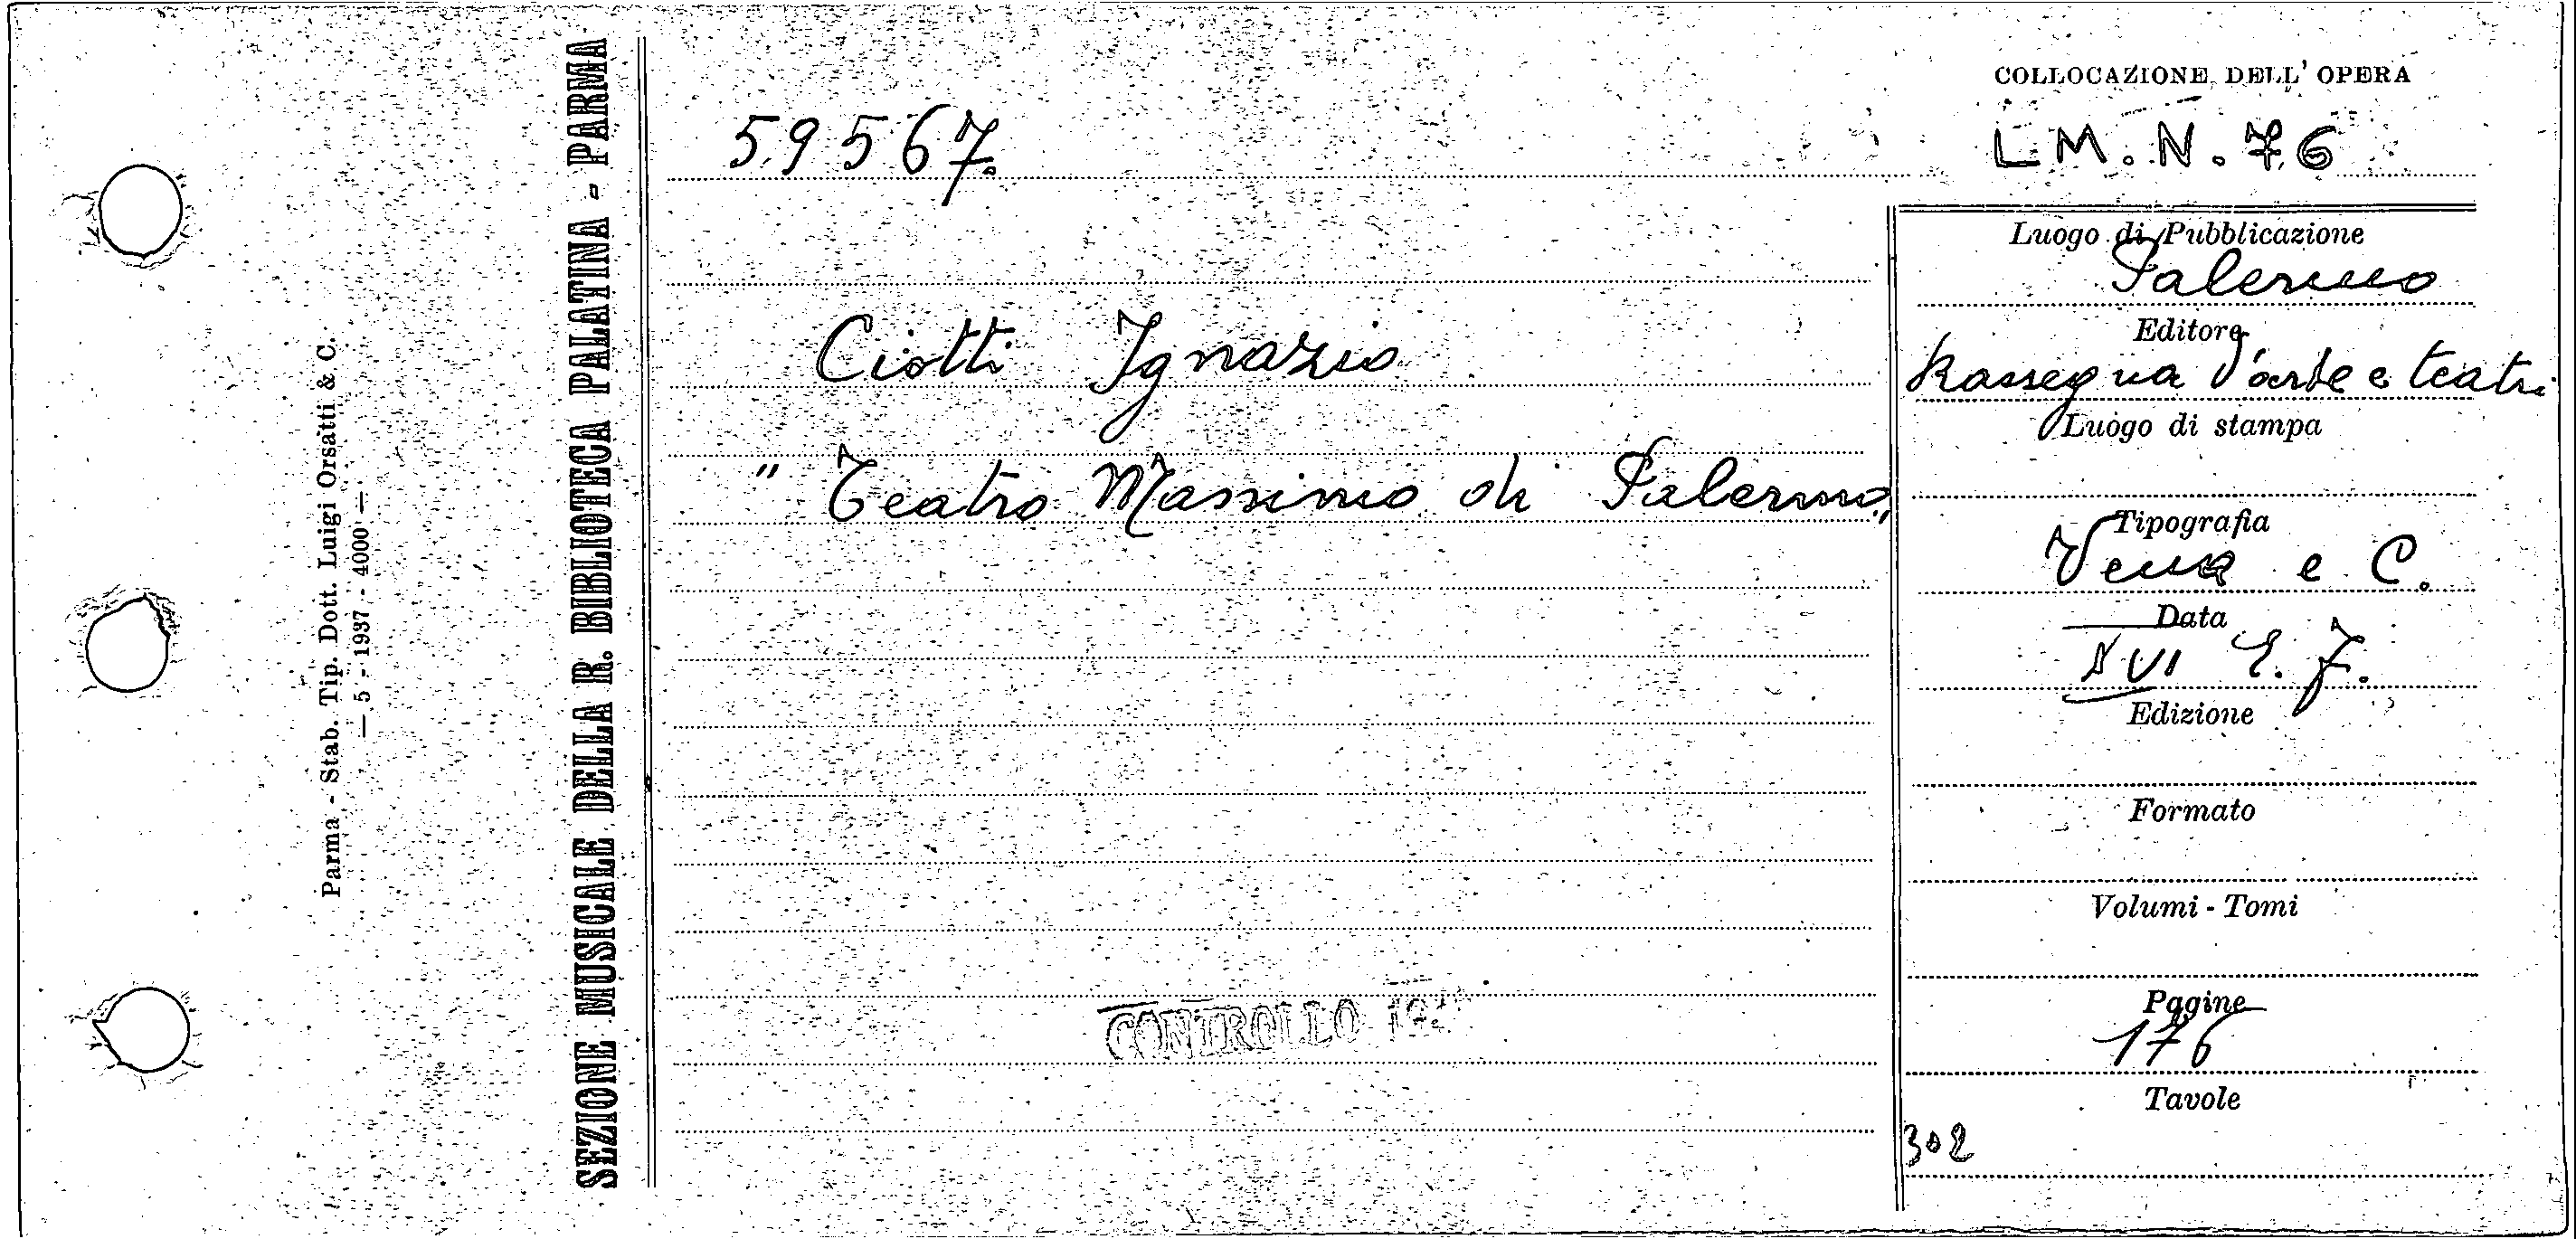 Parma - Stab. Tip. Dott. Luigi Orsatti & C.
— 5 - 1937 - 4000 —
SEZIONE MUSICALE DELLA R. BIBLIOTECA PALATINA - PARMA
59567.
Ciotti Ignazio
" Teatro Massimo di Palermo "
CONTROLLO
COLLOCAZIONE DELL' OPERA
L M. N. 76
Luogo di Pubblicazione
Palermo
Editore
Rassegna d'arte e teatri
Luogo di stampa
Tipografia
e C.
Data
XVI E. F.
Edizione
Formato
Volumi - Tomi
Pagine
176
Tavole
302